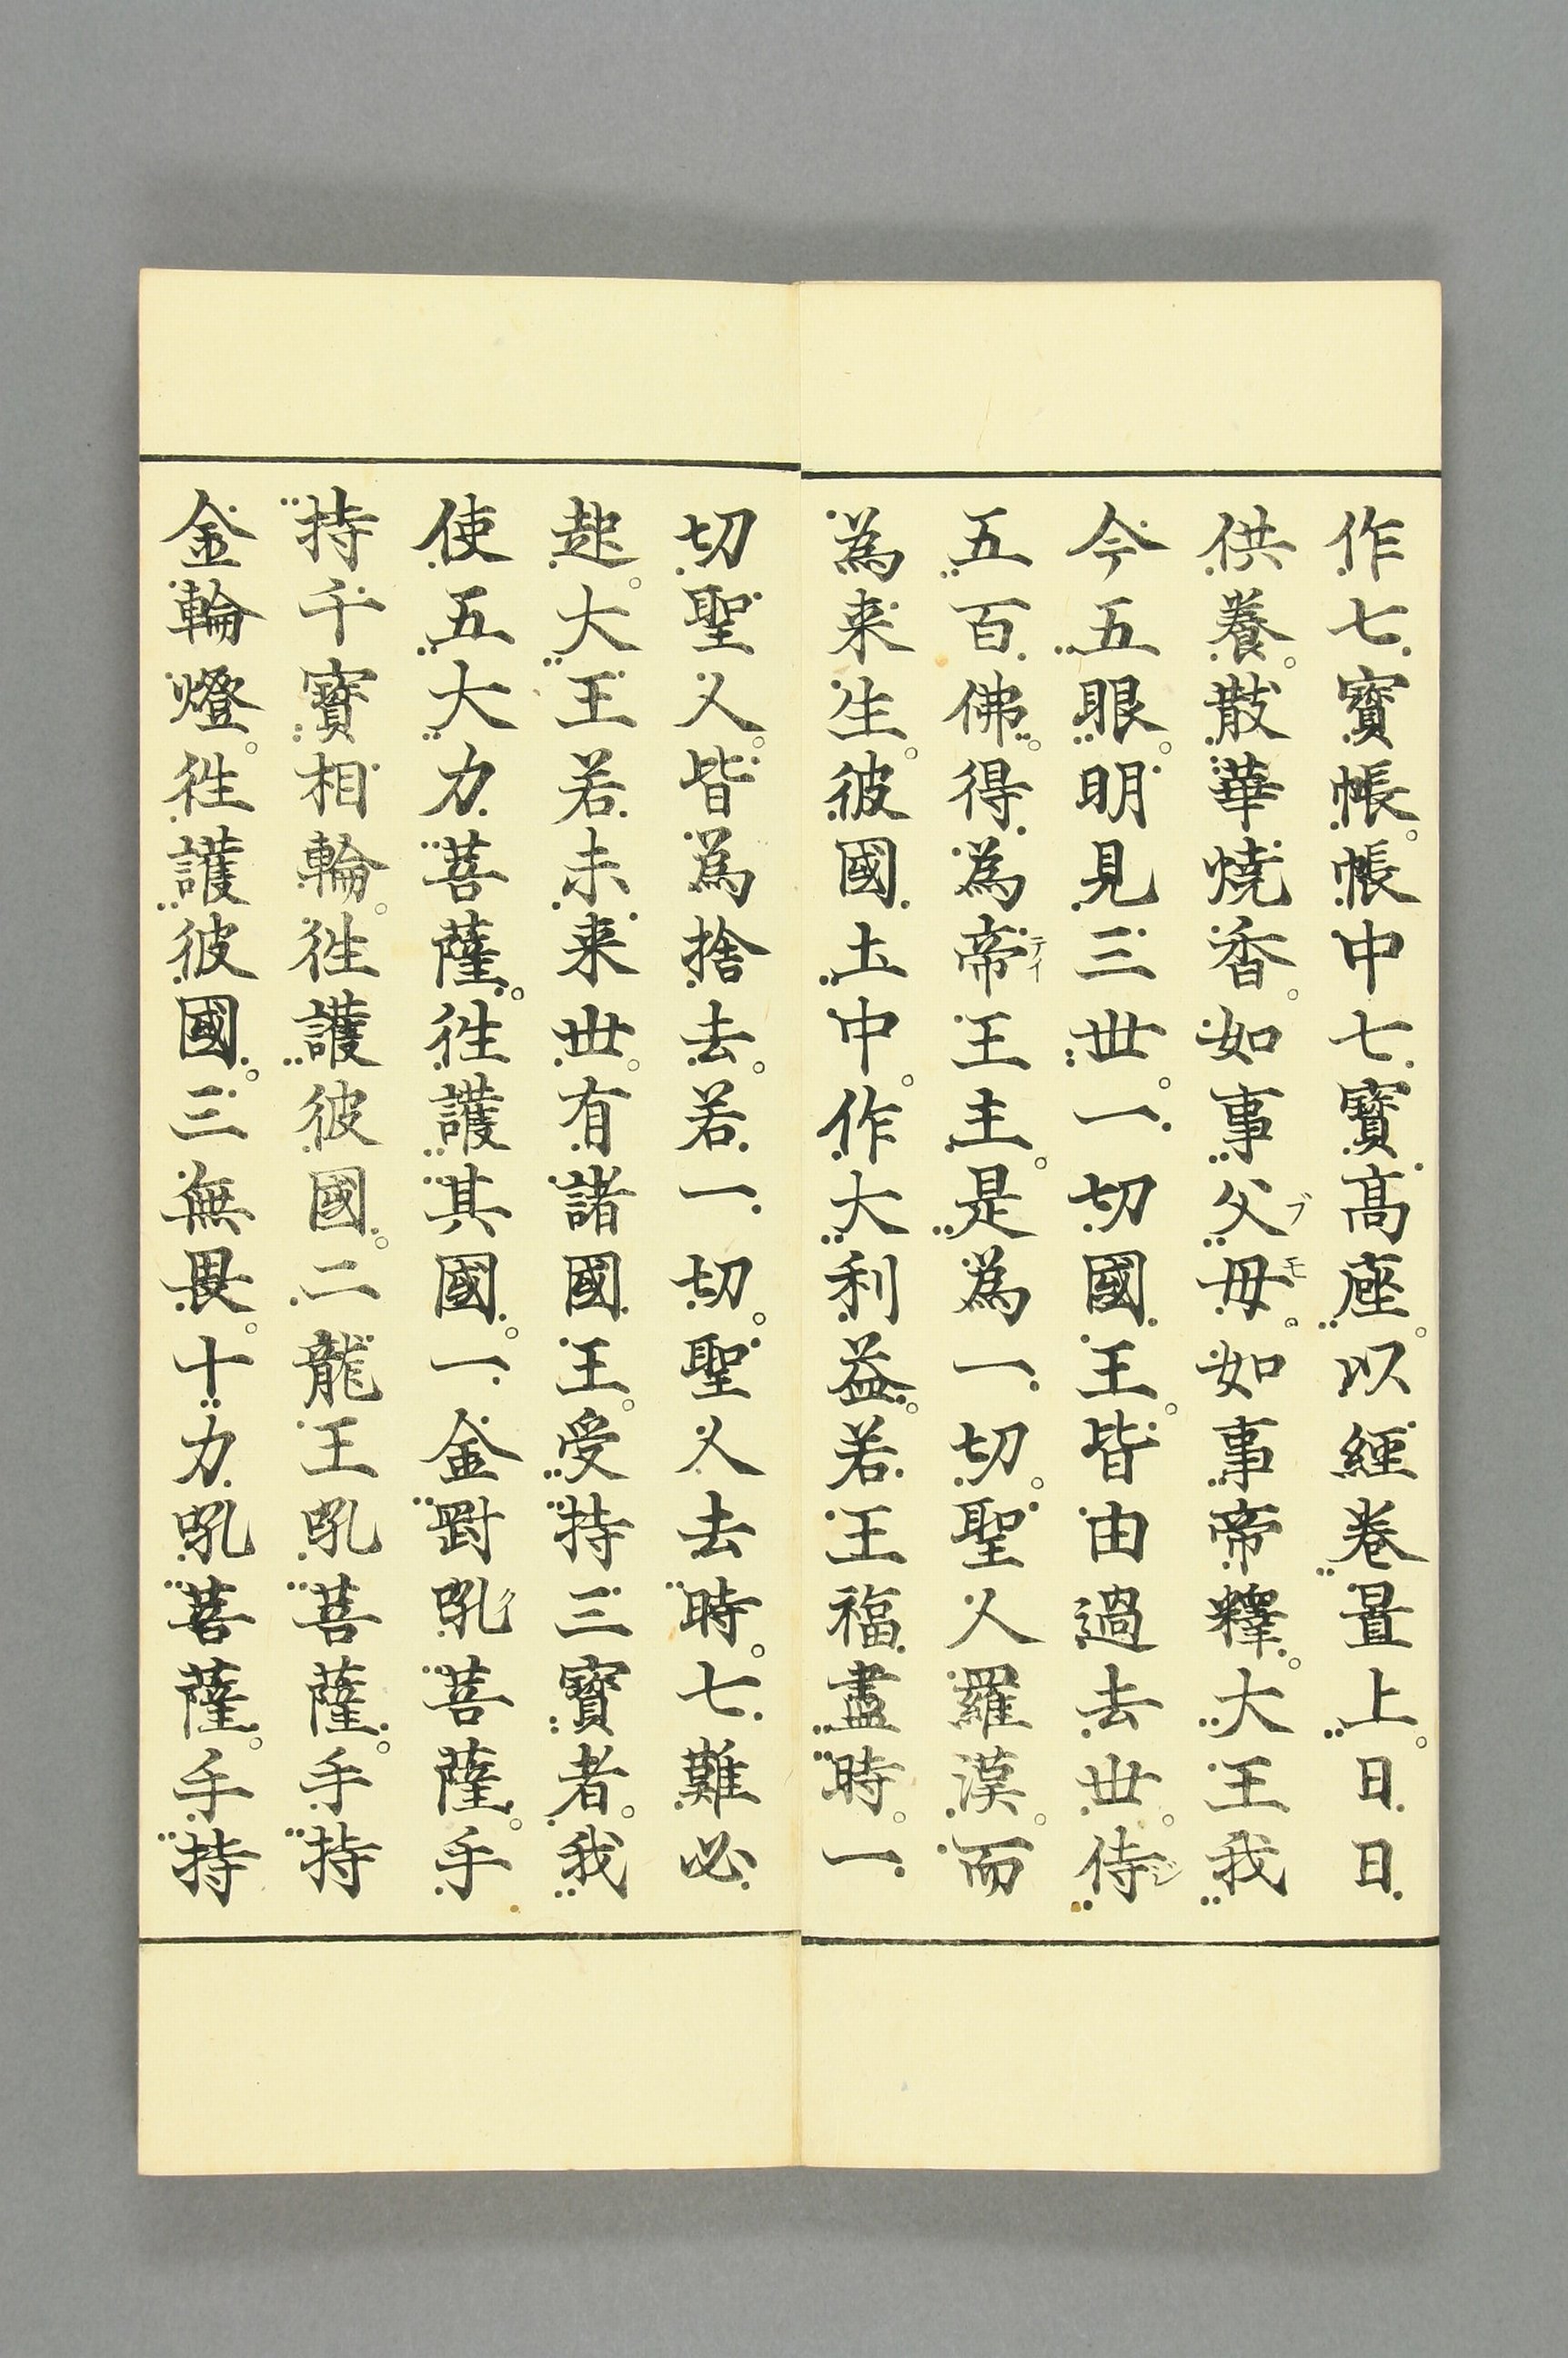 作七寶帳。帳中七寶高座。以經卷置上。日日
供養。散華燒香。如事父ブ母モ。如事帝釋。大王我
今五眼。明見三世。一切國王。皆由過去世。侍ジ
五百佛。得為帝テイ王主。是為一切。聖人羅漢。而
為来生。彼國土中。作大利益。若王福盡時。一
切聖人。皆為捨去。若一切。聖人去時。七難必
起。大王若未来世。有諸國王。受持三寶者。我
使五大力菩薩。往護其國。一金剛吼ク菩薩。手
持千寶相輪。往護彼國。二龍王吼菩薩。手持
金輪燈。往護彼國。三無畏。十力吼菩薩。手持